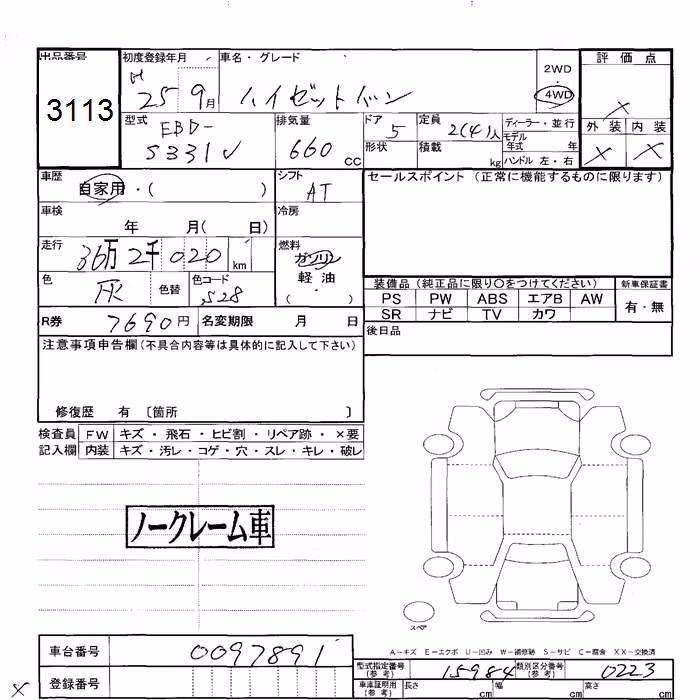 出品番号 初度登録年月 車名・グレード 評価点
3113
H 25 9月 ハイゼットバン 2WD・4WD ×
外装 内装
型式 排気量 ドア 定員 ディーラー・並行
EBD-S331V 660cc 5 2(4)人 モデル年式 年
形状 積載 kg ハンドル 左・右 × ×
車歴 シフト セールスポイント(正常に機能するものに限ります)
自家用・( ) AT
車検 年 月( 日) 冷房
走行 36万2千020km 燃料 ガソリン
軽油・( )
色 灰 色替 色コード S28
装備品(純正品に限り○をつけてください) 新車保証書
PS PW ABS エアB AW 有・無
SR ナビ TV カワ
R券 7690円 名変期限 月 日 後日品
注意事項申告欄(不具合内容等は具体的に記入して下さい)
修復歴 有 〔箇所 〕
検査員 FW キズ・飛石・ヒビ割・リペア跡・×要
記入欄 内装 キズ・汚レ・コゲ・穴・スレ・キレ・破レ
ノークレーム車
スペア
A-キズ E-エクボ U-凹み W-補修跡 S-サビ C-腐食 XX-交換済
車台番号 0097891
型式指定番号(参考) 15984 類別区分番号(参考) 0223
登録番号
車庫証明用(参考) 長さ cm 幅 cm 高さ cm
×